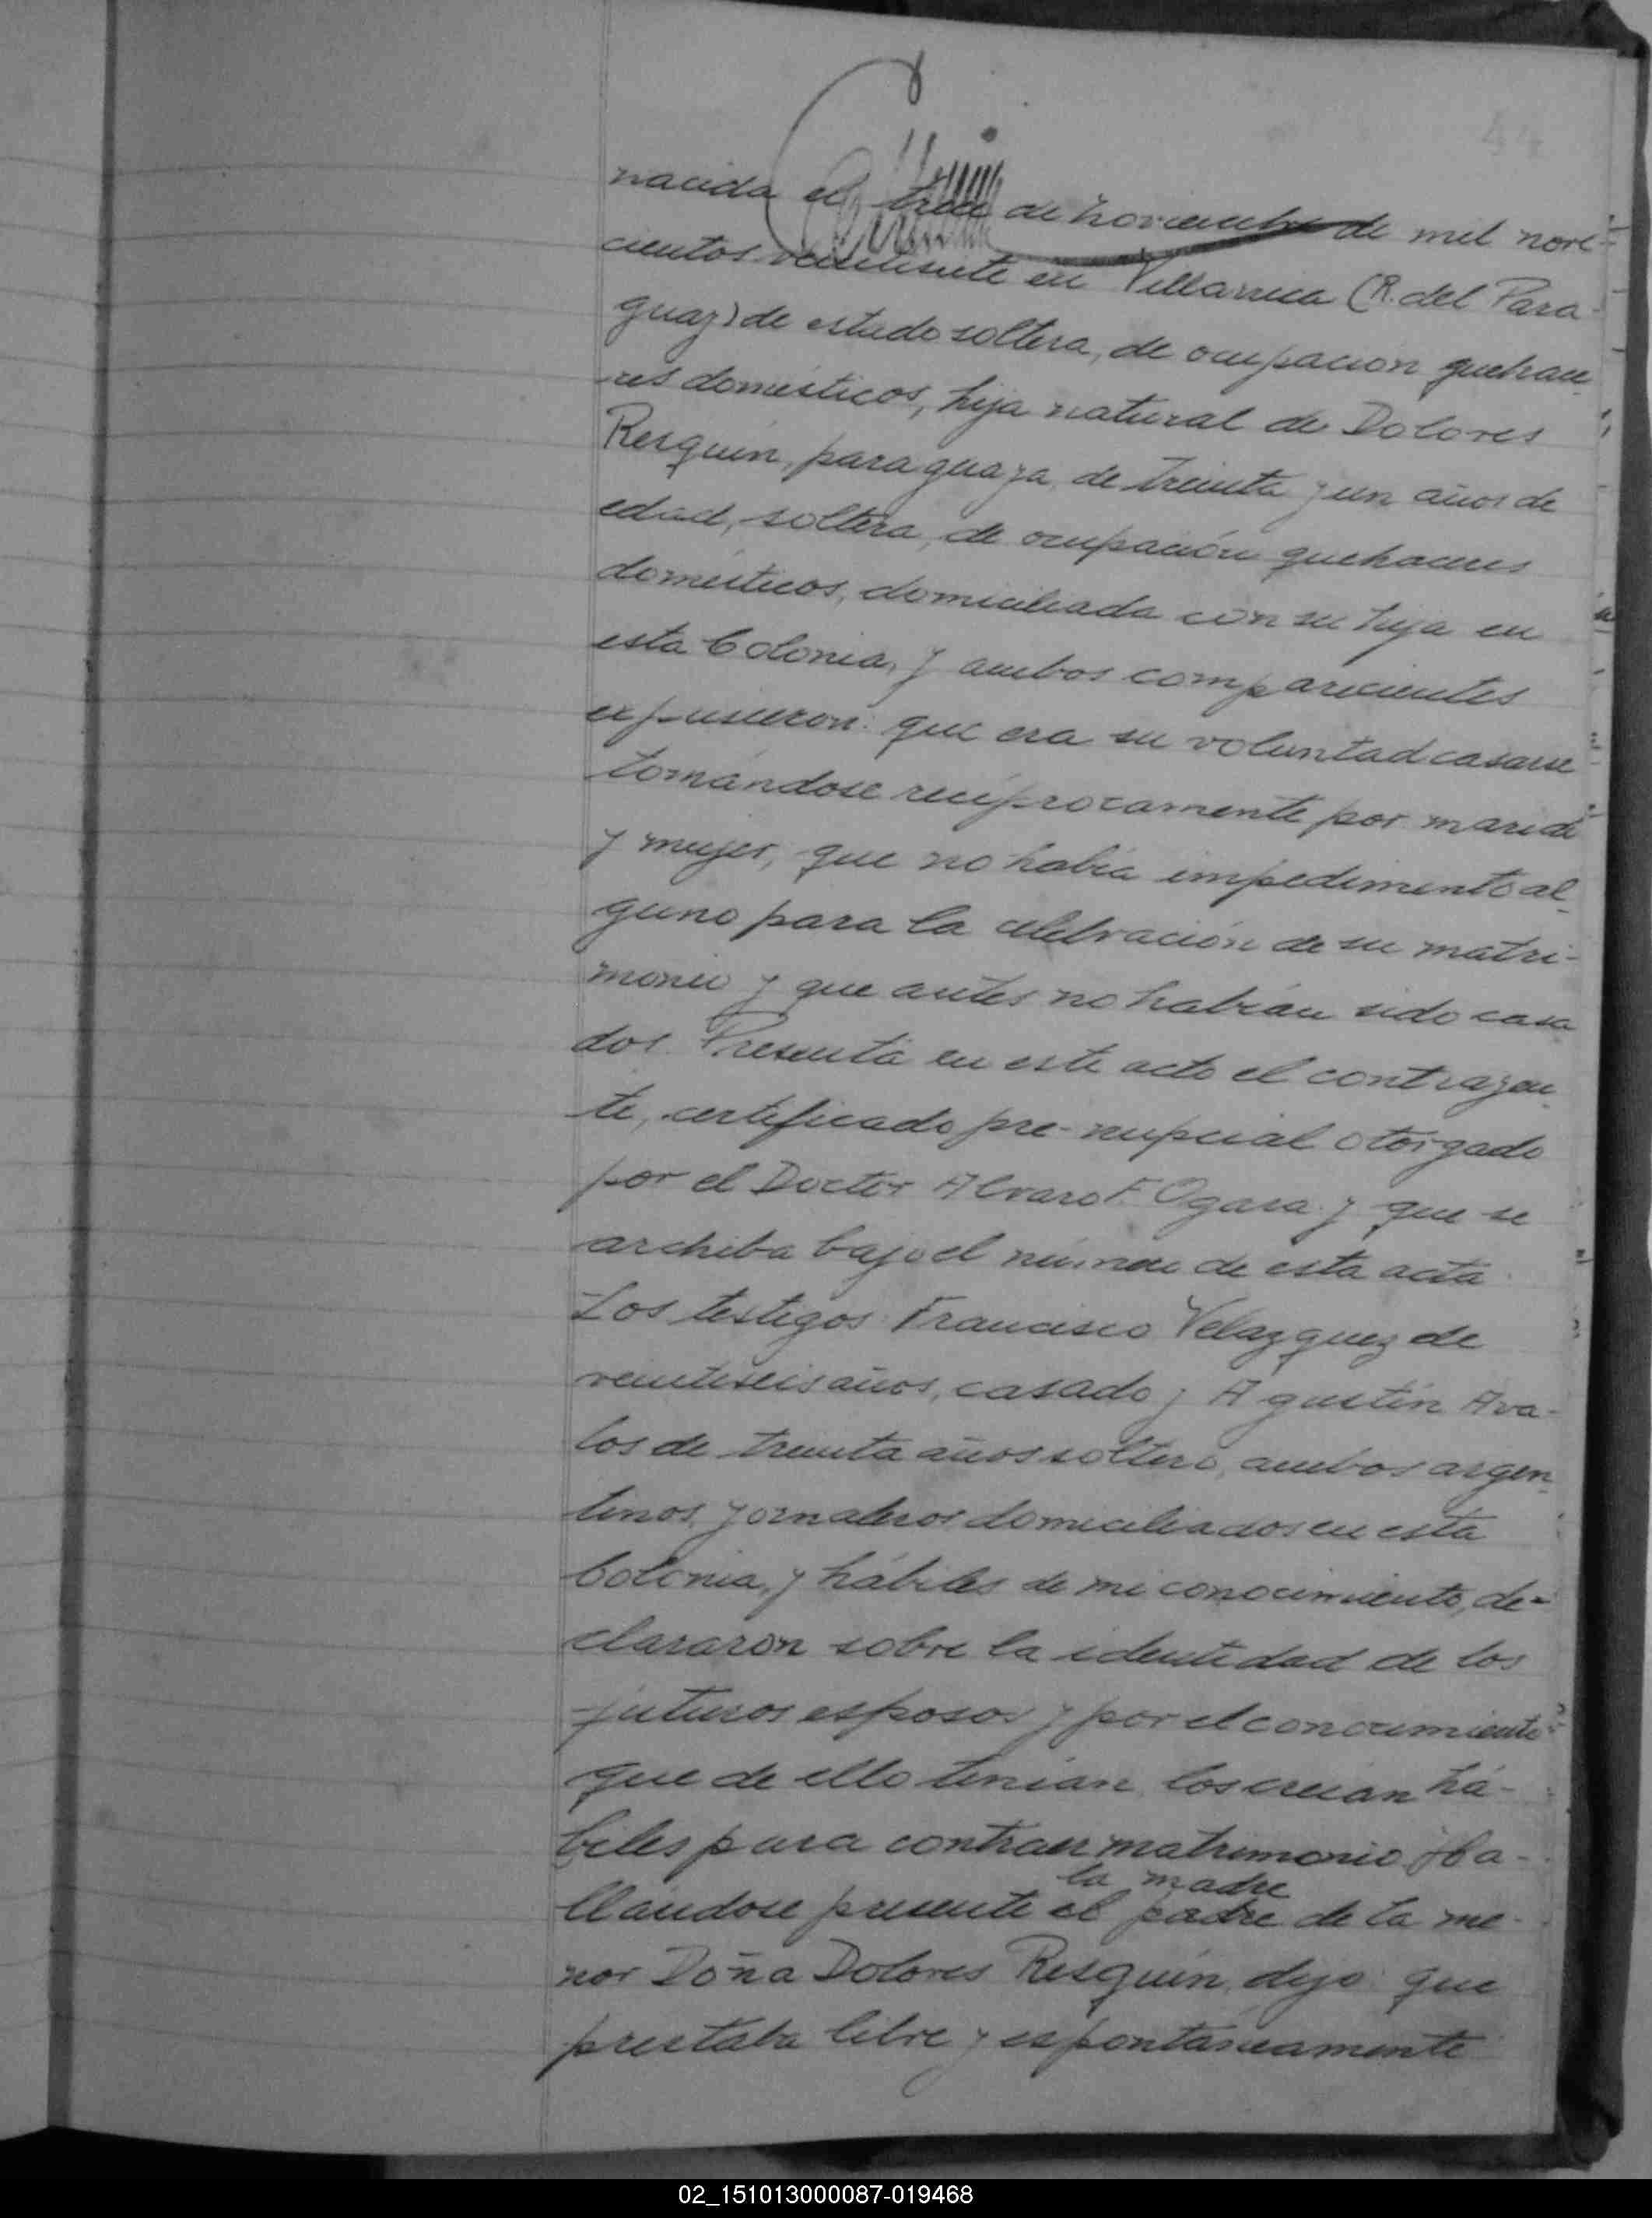 44
nacida el trece de noviembre de mil nove-
cientos veintisiete en Villarrica (R. del Para-
guay) de estado soltera, de ocupación quehace-
res domésticos, hija natural de Dolores
Resquin, paraguaya, de treinta y un años de
edad, soltera, de ocupación quehaceres
domésticos, domiciliada con su hija en
esta Colonia, y ambos comparecientes
expusieron: que era su voluntad casarse
tomándose recíprocamente por marido
y mujer; que no había impedimento al-
guno para la celebración de su matri-
monio y que antes no habían sido casa
dos. Presenta en este acto el contrayen-
te, certificado pre-nupcial otorgado
por el Doctor Alvaro F. Ogara y que se
archiba bajo el número de esta acta.
Los testigos Francisco Velazquez de
veintiseis años, casado y Agustín Ava-
los de treinta años soltero, ambos argen-
tinos, jornaleros domiciliados en esta
Colonia, y hábiles de mi conocimiento, de-
clararon sobre la identidad de los
futuros esposos y por el conocimiento
que de ello tenían, los creían há-
biles para contraer matrimonio. Ha-
la madre
llándose presente el padre de la me-
nor Doña Dolores Resquin, dijo: que
prestaba libre y espontáneamente
02_151013000087-019468